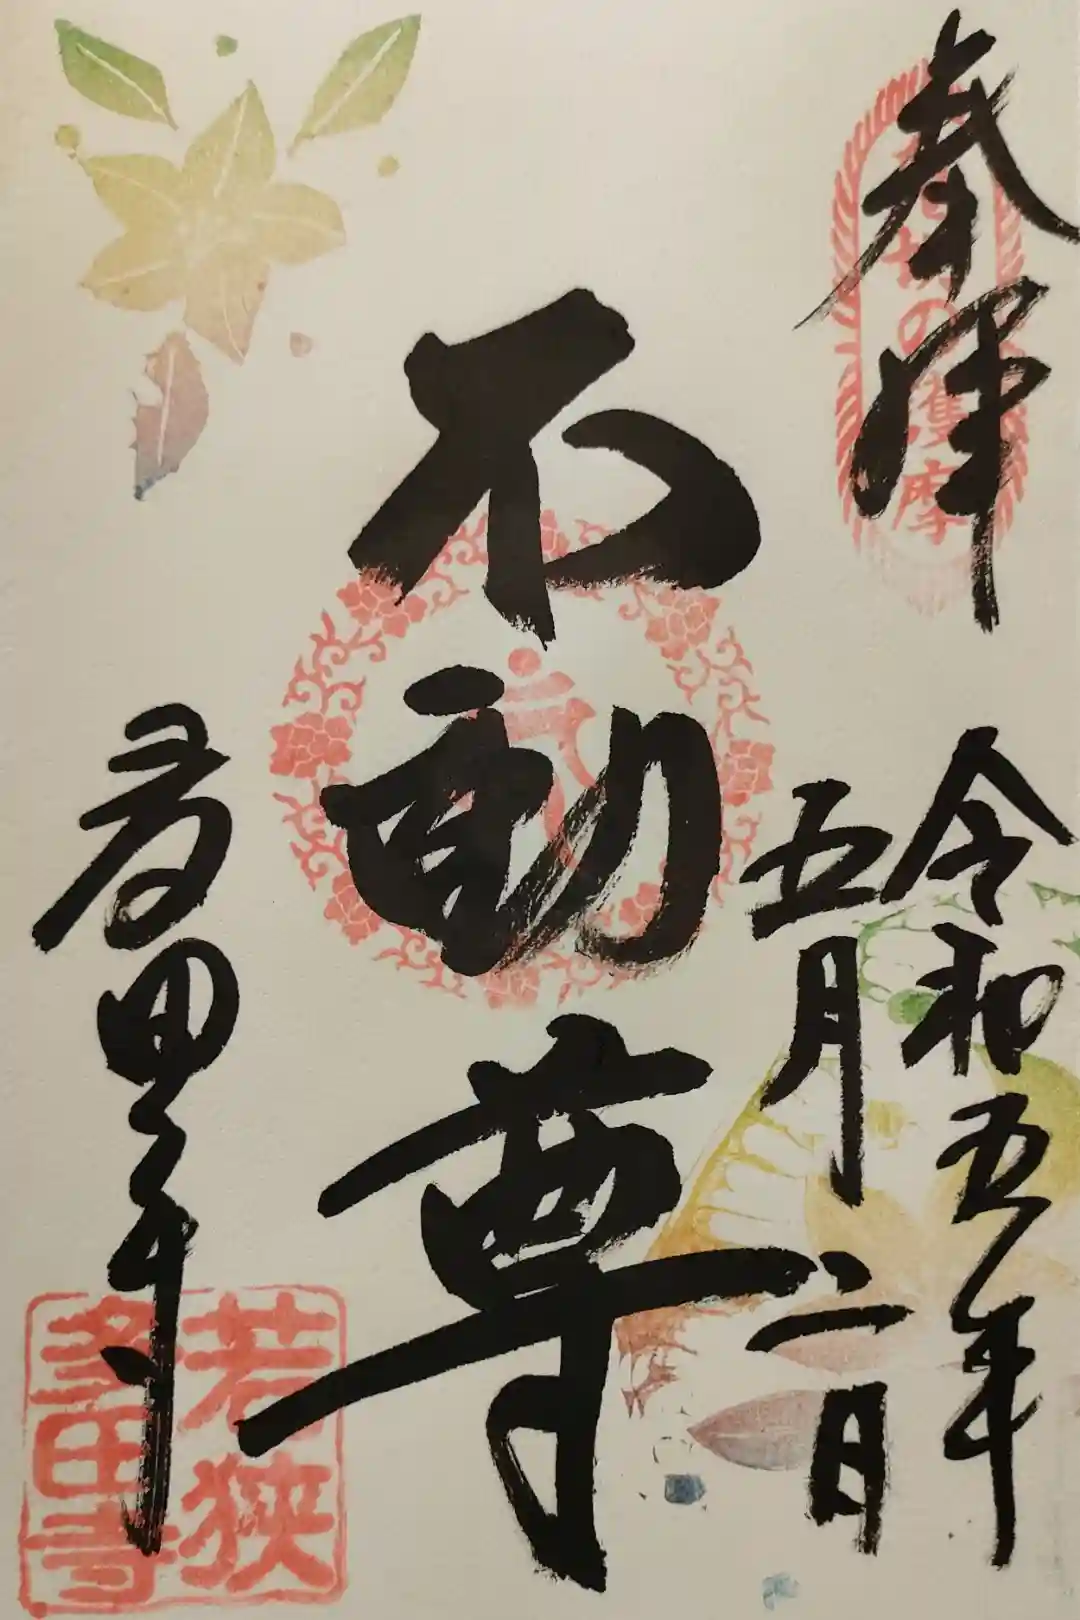 奉拝
の護摩
令和五年
五月二日
不動尊
多田寺
若狭
多田寺